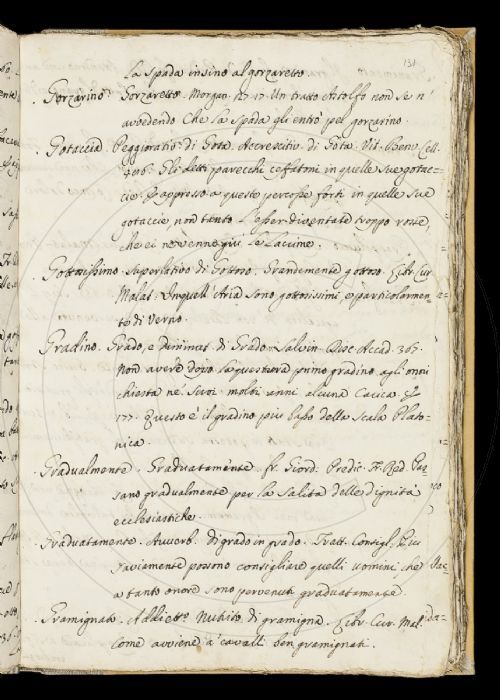 131
la spada insino al gorzaretto.
Gorzarino. Gorzaretto. Morgan. 27. 17. Un tratto Astolfo non se n'
avvedendo Che la spada gli entrò pel gorzarino.
Gotaccia. Peggiorativ. di Gota. Accrescitiv. di Gota. Vit. Benv. Cell.
406. Gli detti parecchi ceffatoni in quelle sue gotac=
cie. E appresso a queste percosse forti in quelle sue
gotaccie, non tanto l'esser diventate troppo rosse,
che ei ne venne giù le lacrime.
Gottosissimo. Superlativo di Gottoso. Grandemente gottoso. Libr. Cur.
Malat. In quell'Aria sono gottosissimi, e particolarmen=
te di Verno.
Gradino. Grado, e Diminut. di Grado. Salvin. Disc. Accad. 367.
Non avere dopo la questura primo gradino agli onori
chiesta ne' suoi molti anni alcuna Carica. E
177. Questo è il gradino più basso della scala Plato=
nica.
Gradualmente. Graduatamente. fr. Giord. Predic. Fr. Red. Pas
sano gradualmente per la salita delle dignità
ecclesiastiche.
Graduatamente. Avverb. di grado in grado. Tratt. Consigl. Più
saviamente possono consigliare quelli uomini, che
a tanto onore sono pervenuti graduatamente.
Gramignato. Addiett. Nutrito di gramigna. Libr. Cur. Mal.
Come avviene a' cavalli ben gramignati.